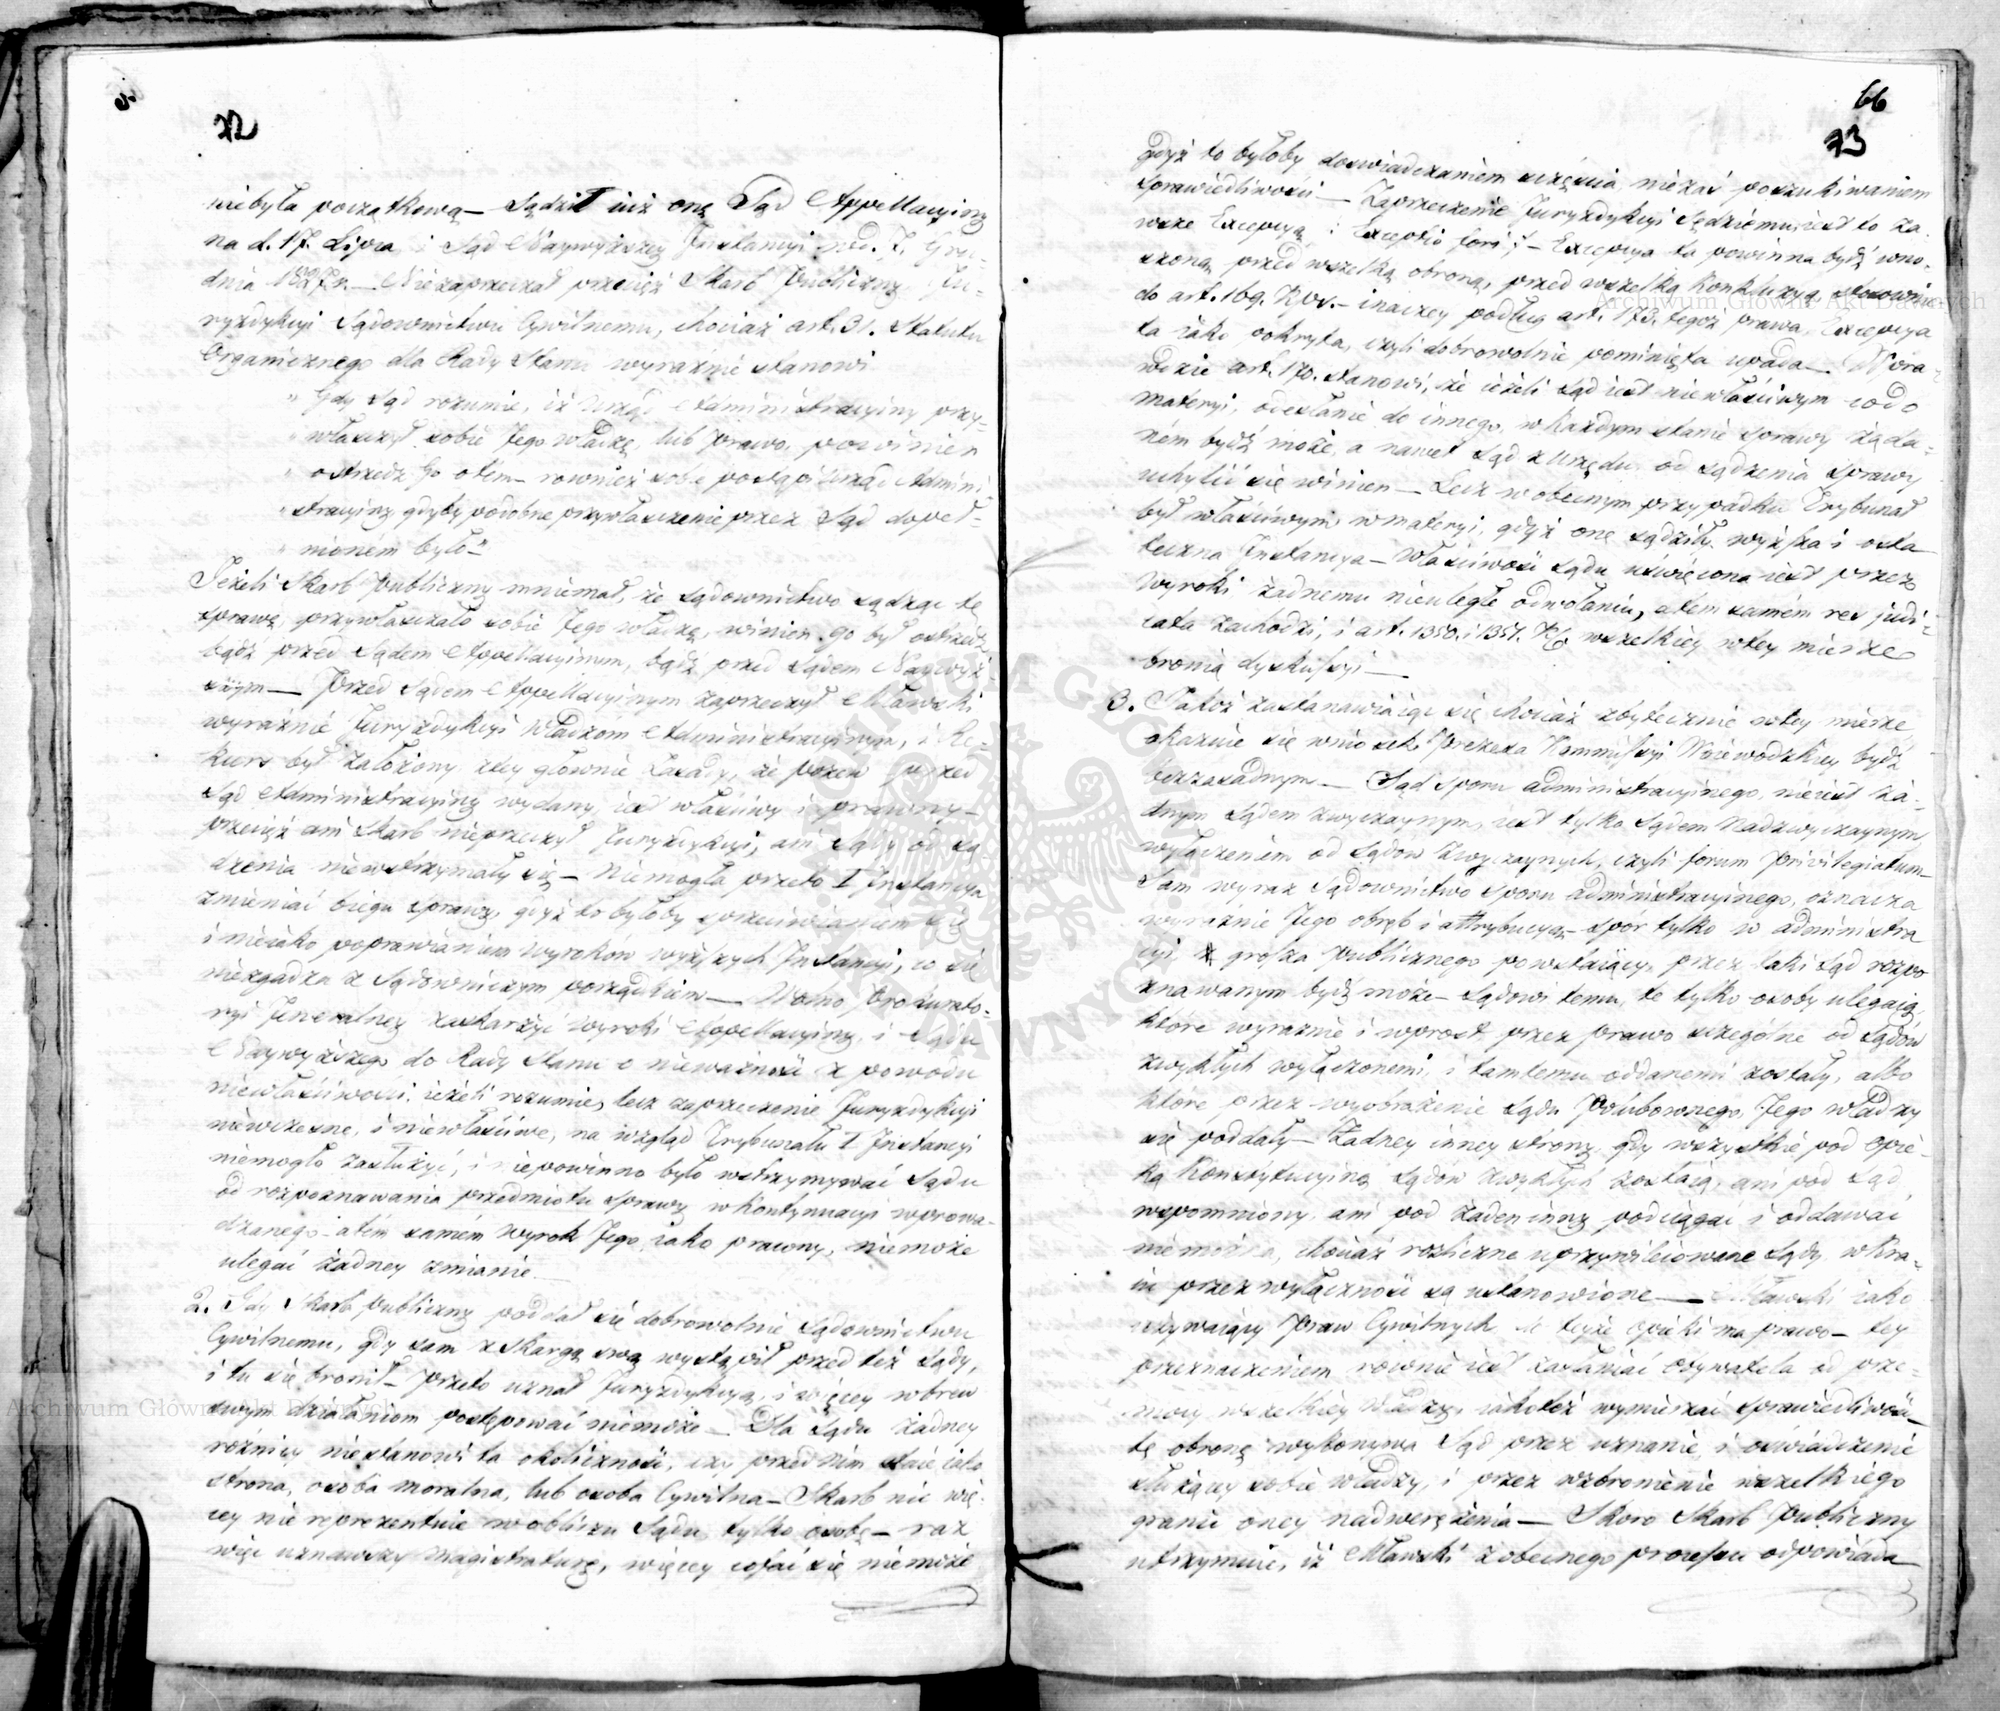 72
niebyła początkową — Sądził iuż onę Sąd Appellacyiny
na d. 17. Lipca i Sąd Naywyższey Instancyi pod d. 7. Gru-
dnia 1827 r. — Niezaprzeczał przecież Skarb Publiczny Ju-
ryzdykcyi Sądownictwu Cywilnemu, chociaż art. 31. Statutu
Organicznego dla Rady Stanu wyraźnie stanowi
„ Gdy Sąd rozumie, iż Urząd Administracyiny przy-
„ właszczył sobie Jego władzę, lub prawo, powinien
„ ostrzedz Go o tem — rownież sobie postąpi Urząd Admini
„ stracyiny gdyby podobne przywłaszczenie przez Sąd dopeł-
„ nioném było"
Jeżeli Skarb Publiczny mniemał, że Sądownictwo sądząc tę
sprawę, przywłaszczało sobie Jego władzę, winien go był ostrzedz
bądź przed Sądem Appellacyinym, bądź przed Sądem Naywyż-
szym — Przed Sądem Appellacyinym zaprzeczył Mławski
wyraźnie Juryzdykcyi Władzom Administracyinym, i Re-
kurs był założony z tey głównie zasady, że pozew przed
Sąd Administracyiny wydany, iest właściwy i prawny —
przecież ani Skarb nieprzeczył Juryzdykcyi, ani Sądy od są-
dzenia niewstrzymały się — Niemogła przeto I Instancya
zmieniać biegu sprawy, gdyż to byłoby sprzeciwianiem się
i nieiako poprawianiem wyrokow wyższych Instancyi, co się
niezgadza z Sądowniczym porządkiem — Wolno Prokurato-
ryi Jeneralney zaskarżyć wyroki Appellacyiny i Sądu
Naywyższego do Rady Stanu o nieważność z powodu
niewłaściwości, ieżeli rozumie, lecz zaprzeczenie Juryzdykcyi
niewczesne, i niewłaściwe, na wzgląd Trybunału I Instancyi
niemogło zasłużyć, i niepowinno było wstrzymywać Sądu
od rozpoznawania przedmiotu sprawy w kontynuacyi wprowa-
dzanego — a tém samém wyrok Jego iako prawny, niemoże
ulegać żadney zmianie —
2. Gdy Skarb Publiczny poddał się dobrowolnie Sądownictwu
Cywilnemu, gdy sam z skargą swą wystąpił przed też Sądy,
i tu się bronił — przeto uznał Juryzdykcyą, i więcey wbrew
swym działaniom postępować niemoże — Dla Sądu żadney
różnicy niestanowi ta okoliczność, czy przed nim staie iako
strona, osoba moralna, lub osoba Cywilna — Skarb nic wię-
cey nie reprezentuie w obliczu Sądu, tylko osobę — raz
więc uznawszy Magistraturę, więcey cofać się niemoże
66
73
gdyż to byłoby doświadczaniem szczęścia niezaś poszukiwaniem
sprawiedliwości — Zaprzeczenie Juryzdykcyi Sędziemu iest to za-
wsze Excepcyą : Exceptio fori :/ — Excepcya ta powinna bydź wno-
szoną przed wszelką obroną, przed wszelką Konkluzyą stosownie
do art. 169. — inaczey podług art. 173. tegoż prawa, Excepcya
ta iako pokryta, czyli dobrowolnie pominięta upada — Wpra-
wdzie art. 170. stanowi, że ieżeli Sąd iest niewłaściwym co do
materyi, odesłanie do innego, w każdym stanie sprawy żąda-
ném bydź może, a nawet Sąd z Urzędu od sądzenia sprawy
uchylić się winien — Lecz w obecnym przypadku Trybunał
był właściwym w materyi, gdyż onę sądziły wyższa i osta
teczna Instancya — Właściwość Sądu uświęcona iest przez
wyroki żadnemu nieuległe odwołaniu, a tem samém res judi-
cata zachodzi, i art. 1350. i 1351. wszelkiey w tey mierze
bronią dyskussyi —
3. Jakoż zastanawiaiąc się chociaż zbytecznie w tey mierze
okazuie się wniosek Prezesa Kommissyi Woiewodzkiey bydź
bezzasadnym — Sąd sporu administracyinego, nieiest ża-
dnym Sądem zwyczaynym, iest tylko Sądem Nadzwyczaynym,
wyłączeniem od Sądow Zwyczaynych, czyli forum privilegiatum —
Sam wyraz Sądownictwo Sporu administracyinego, oznacza
wyraźnie Jego obręb i attrybucyą — Spór tylko w administra
cyi grosza publicznego powstaiący, przez taki Sąd rozpo-
znawanym bydź może — Sądowi temu, te tylko osoby ulegaią
które wyraźnie i wprost przez prawo szczególne od Sądów
zwykłych wyłączonemi, i tamtemu oddanemi zostały, albo
które przez wyobrażenie Sądu Polubownego, Jego władzy
się poddały — Żadney inney strony, gdy wszystkie pod opie-
ką Konstytucyiną Sądow zwykłych zostaią, ani pod Sąd
wspomniony, ani pod żaden inny podciągać i oddawać
niemożna, chociaż rozliczne uprzywileiowane Sądy, w Kra-
iu przez wyłączność są ustanowione — Mławski iako
używaiący Praw Cywilnych do teyże opieki ma prawo — tey
przeznaczeniem rownie iest zasłaniać Obywatela od prze-
mocy wszelkiey Władzy, iakoteż wymierzać sprawiedliwość —
tę obronę wykonywa Sąd przez uznanie i oświadczenie
służącey sobie władzy, i przez wzbronienie wszelkiego
granic oney nadwerężenia — Skoro Skarb Publiczny
utrzymuie, iż Mławski z obecnego processu odpowiada
Archiwum Główne Akt Dawnych
Archiwum Główne Akt Dawnych
ARCHIWUM GŁÓWNE AKT DAWNYCH